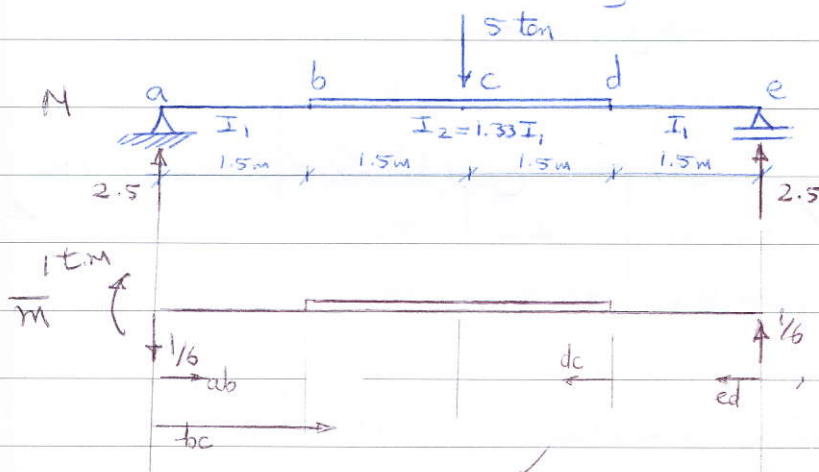 5 ton
M a b c d e
I₁ I₂ = 1.33 I₁ I₁
1.5m 1.5m 1.5m 1.5m
2.5 2.5
1 t.m
m̅
1/6 1/6
ab dc ed
bc